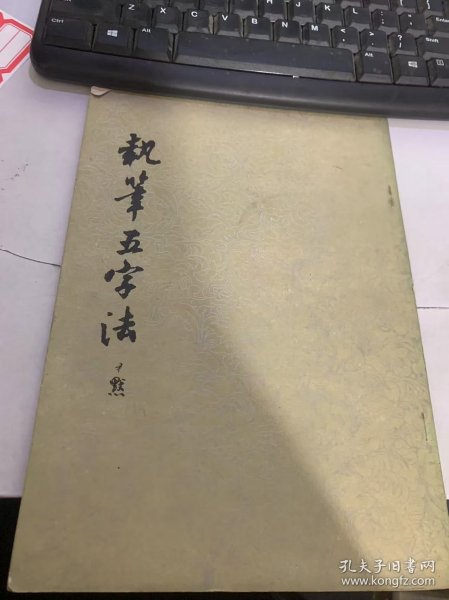 執筆五字法
尹默
Ctrl
Alt
Alt
Ctrl
Shift
Enter
孔夫子旧书网
www.kongfz.com